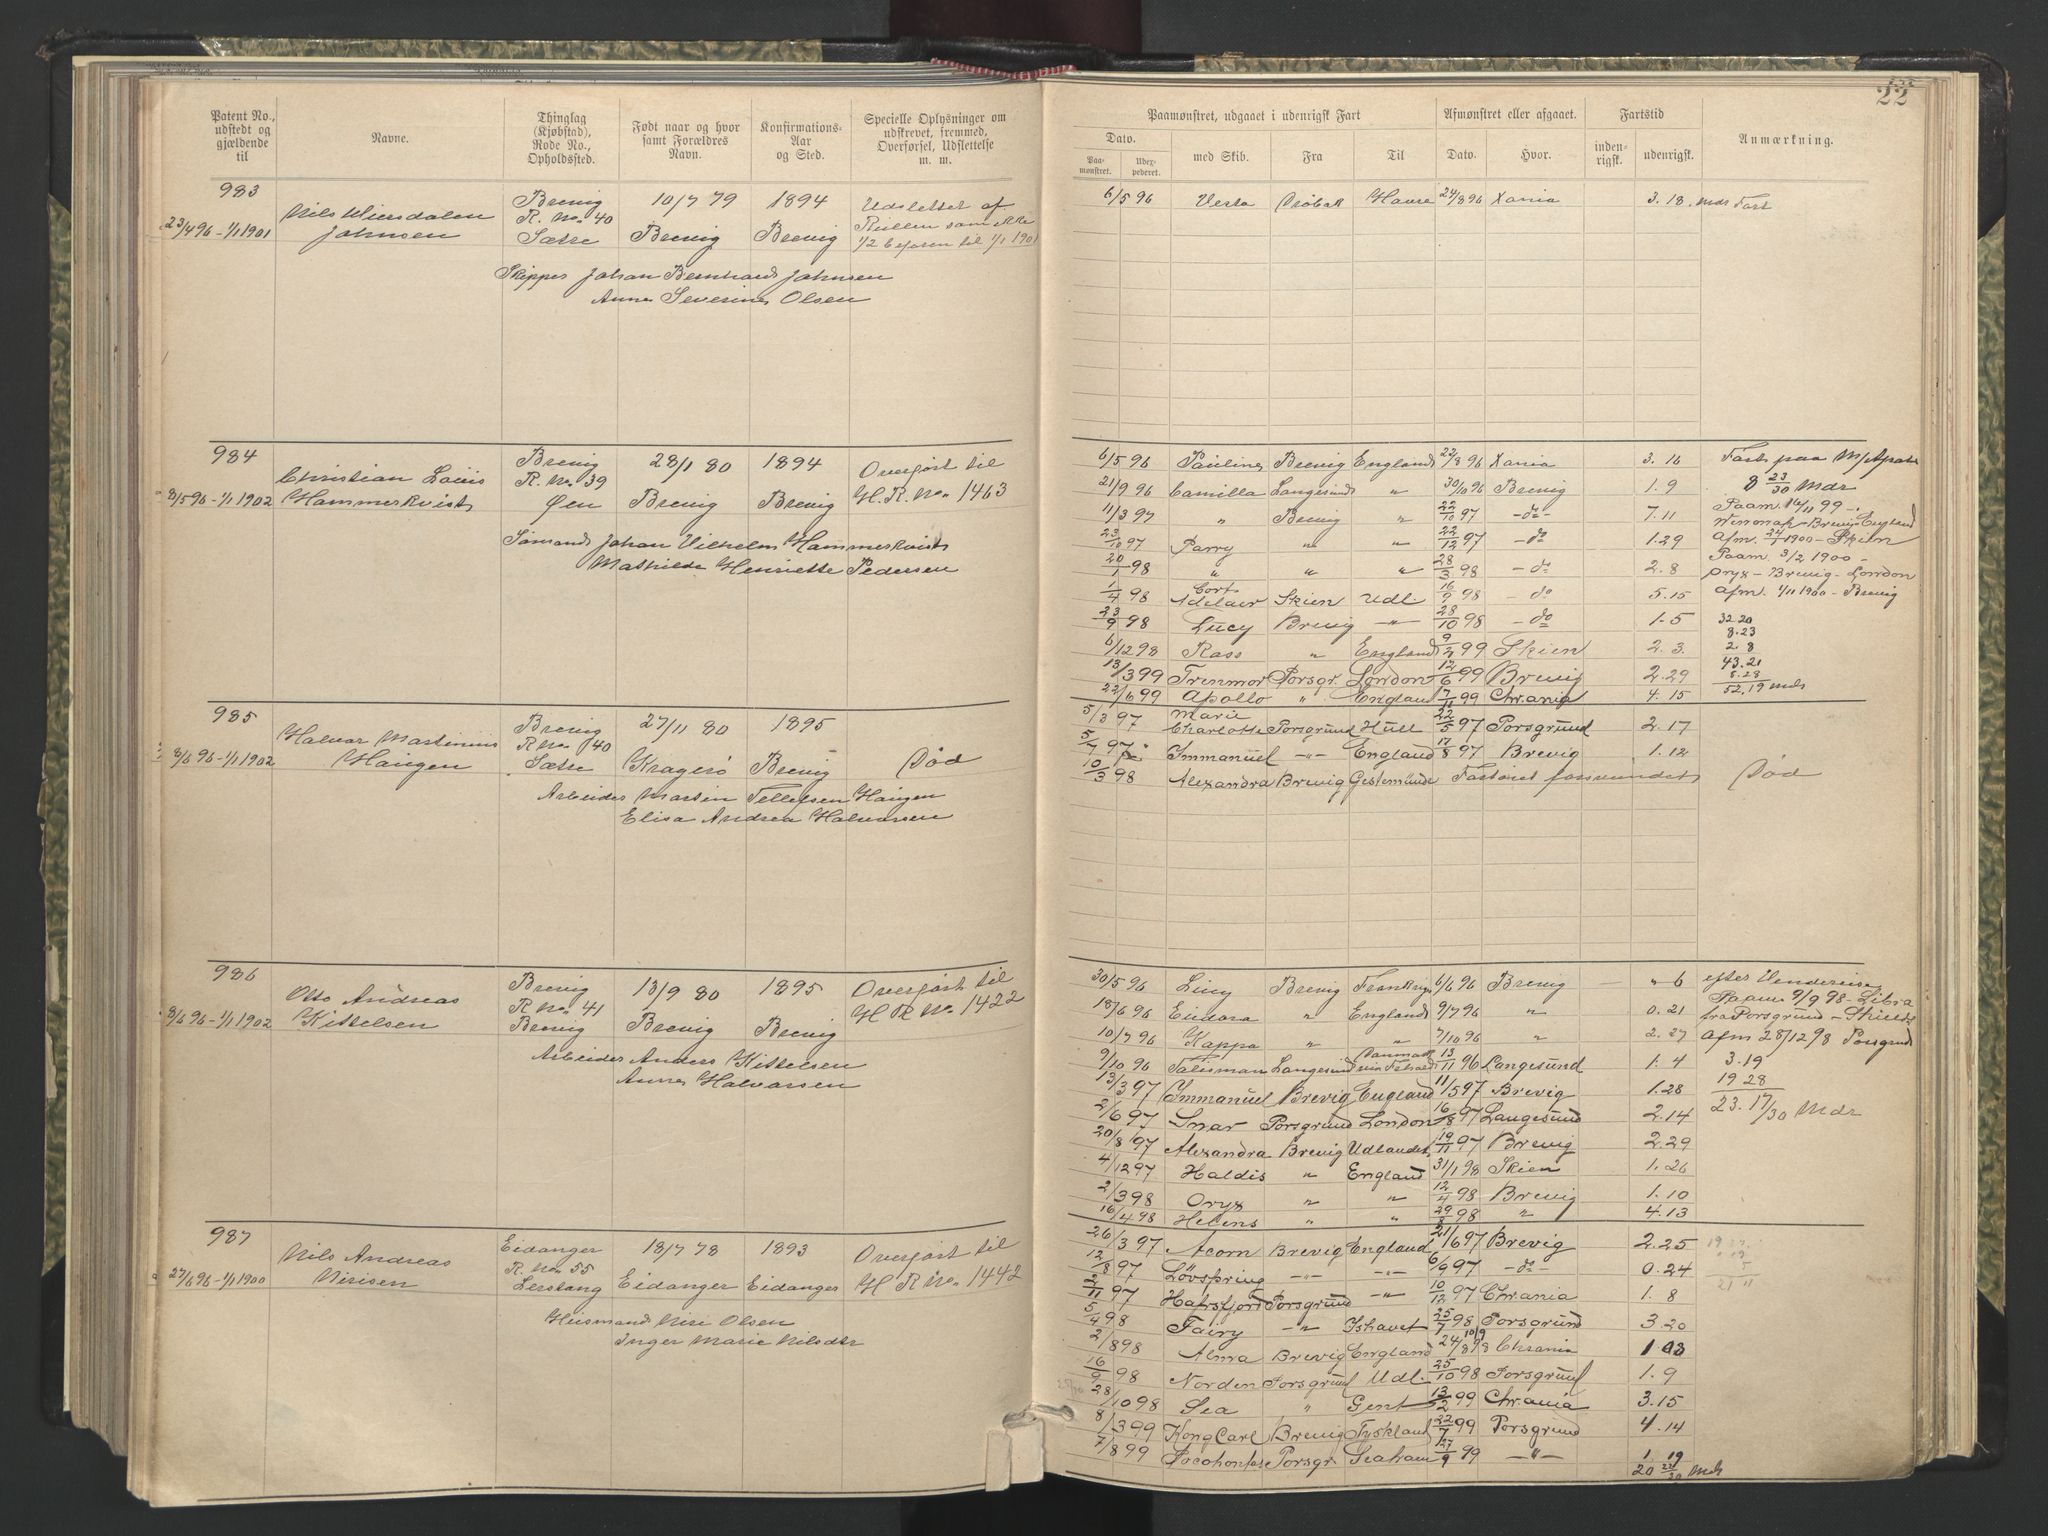 22
Patent No., udstedt og gjældende til
Navne.
Thinglag (Kjøbstad), Rode No., Opholdssted.
Født naar og hvor samt Forældres Navn.
Konfirmations-Aar og Sted.
Specielle Oplysninger om udskrevet, fremmed, Overførsel, Udslettelse m. m.
Paamønstret, udgaaet i udenrigsk Fart
Afmønstret eller afgaaet.
Fartstid
Anmærkning.
Dato.
Paa-mønstret.
Udex-pederet.
med Skib.
Fra
Til
Dato.
Hvor.
inden-rigsk.
udenrigsk.
983 Brevig 10/7 79 1894 Udslettet af
23/4 96 - 1/1 1901 Nils Johnsen R. No. 40 Sætre Brevig Brevig Rullen som ikke
1/2 befaren til 1/1 1901
Skipper Johan Bernhard Johnsen
Anne Severine Olsen
6/5 96 Vesta Drøbak Havre 24/8 96 Xania 3. 18. mdr Fart
984 Brevig 28/1 80 1894 Overført til
8/5 96 - 1/1 1902 Christian Louis Hammerkvist R. No. 39 Øen Brevig Brevig H. R. No. 1463
Sømand Johan Vilhelm Hammerkvist
Mathilde Henriette Pedersen
6/5 96 Pauline Brevig England 22/8 96 Xania 3. 16
21/9 96 Camilla Langesund " 30/10 96 Brevig 1. 9
11/3 97 " Brevig " 22/10 97 - do - 7. 11
23/10 97 Parry " " 22/12 97 - do 1. 29
20/1 98 " " " 28/3 98 - do 2. 8
1/4 98 Cort Adelaer Skien Udl. 16/9 98 - do 5. 15
23/9 98 Lucy Brevig -"- 28/10 98 - do 1. 5
6/12 98 Rass " England 9/2 99 Skien 2. 3.
13/3 99 Trenmor Porsgr. London 12/6 99 Brevig 2. 29
22/6 99 Apollo " England 7/11 99 Chrania 4. 15
8 23/30 Mdr
Paam. 16/11 99 -
Brevig England
Afm. 1900 - Skien
Paam. 3/2 1900 -
Oryx - Brevig - London
Afm. 1/11 1900 - Brevig
32. 20
8. 23
2 8
43. 21
8. 28
52. 19 mdr
985 Brevig 27/11 80 1895
8/6 96 - 1/1 1902 Halvar Martinius Haugen R No. 40 Sætre Kragerø Brevig Død
Arbeider Martin Tellefsen Haugen
Elisa Andrea Halvorsen
5/3 97 Marie Charlotte Porsgrund Hull 22/5 97 Porsgrund 2. 17
5/7 97 Immanuel -"- England 17/8 97 Brevig 1. 12
10/3 98 Alexandra Brevig Gestemünde Fartøiet forsvundet Død
986 Brevig 13/9 80 1895 Overført til
8/6 96 - 1/1 1902 Otto Andreas Kittelsen R No. 41 Brevig Brevig Brevig H R No. 1422
Arbeider Anders Kittelsen
Anne Halvorsen
30/5 96 Lucy Brevig Frankrig 6/6 96 Brevig - " 6
18/6 96 Eudora " England 9/7 96 " 0. 21
10/7 96 Kappa " " 7/10 96 " 2. 27
9/10 96 Talisman Langesund Danmark 13/11 96 Langesund 1. 4
13/3 97 Immanuel Brevig England 11/5 97 Brevig 1. 28
2/6 97 Snar Porsgrund London 16/8 97 Langesund 2. 14
20/8 97 Alexandra Brevig Udlandet 19/11 97 Brevig 2. 29
4/12 97 Haldis " England 31/1 98 Skien 1. 26
2/3 98 Oryx " " 12/4 98 Brevig 1. 10
16/4 98 Helene " " 29/8 98 " 4. 13
efter Venderejse
Paam 9/9 98 - Libra
fra Porsgrund - Skields
Afm 28/12 98 Porsgrund
3. 19
19 28
23. 17/30 Mdr
987 Eidanger 18/7 78 1893 Overført til
27/6 96 - 1/1 1900 Nils Andreas Nirisen R. No. 55 Lerstang Eidanger Eidanger H R No. 1442
Husmand Niri Olsen
Inger Marie Nilsdtr
26/3 97 Acorn Brevig England 21/6 97 Brevig 2. 25
12/8 97 Løvspring -"- -"- 6/9 97 - do - 0. 24
2/11 97 Hafrsfjord Porsgrund -"- 10/12 97 Chrania 1. 8
5/4 98 Fairy -"- Ishavet 25/7 98 Porsgrund 3. 20
2/8 98 Alma Brevig England 24/8 98 Chrania
16/9 98 Norden Porsgrund Udl. 25/10 98 Porsgrund 1. 9
28/10 98 Sea " Gent 13/2 99 Chrania 3. 15
8/3 99 Kong Carl Brevig Tyskland 22/7 99 Porsgrund 4. 14
7/8 99 Pocohontas Porsgr. Seaham 27/9 99 -"- 1. 19
20 22/30 Mdr